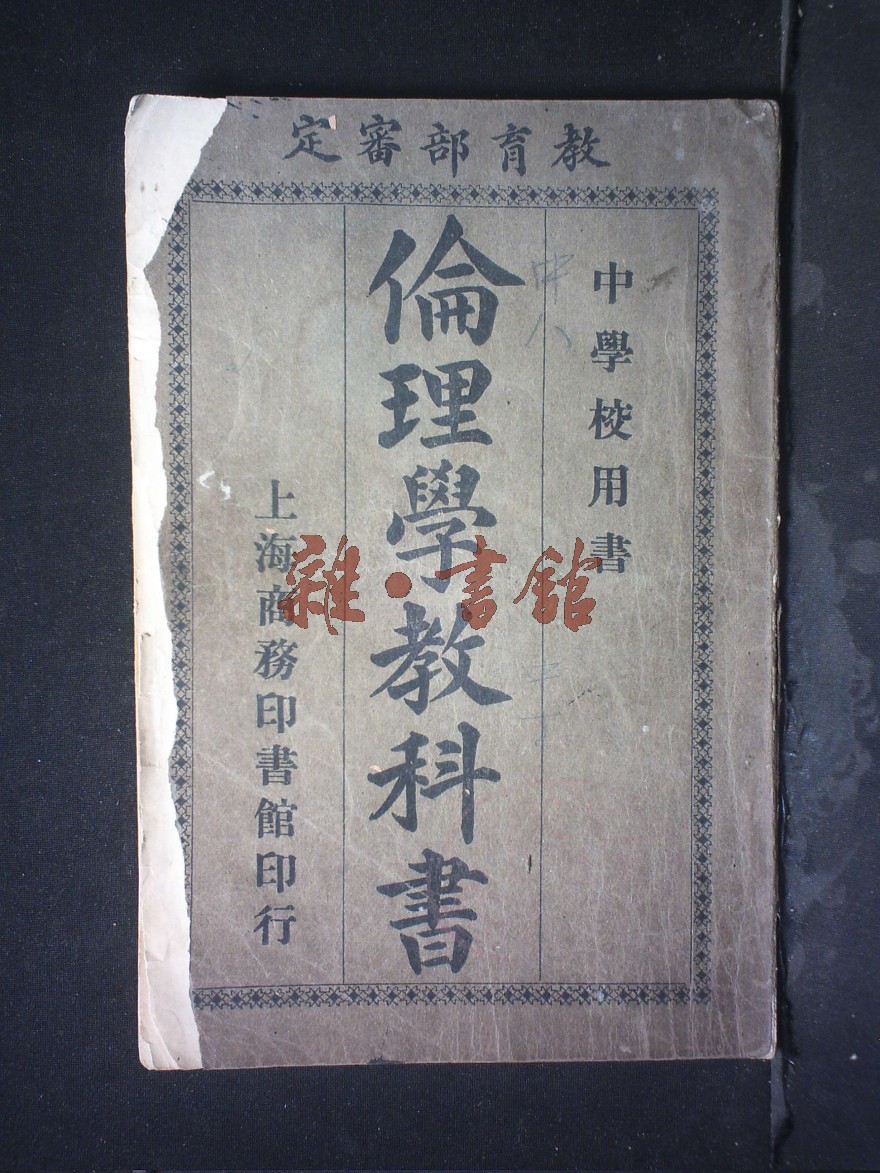 教育部審定
中學校用書
倫理學教科書
上海商務印書館印行
雜·書舘
中八